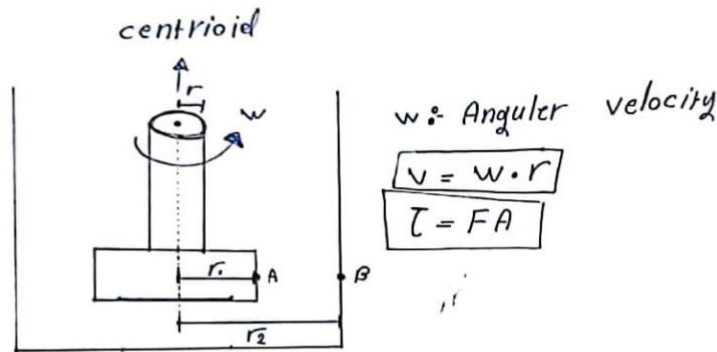 centrioid
r
w
w :- Anguler velocity
v = w . r
τ = FA
r₁ A B
r₂